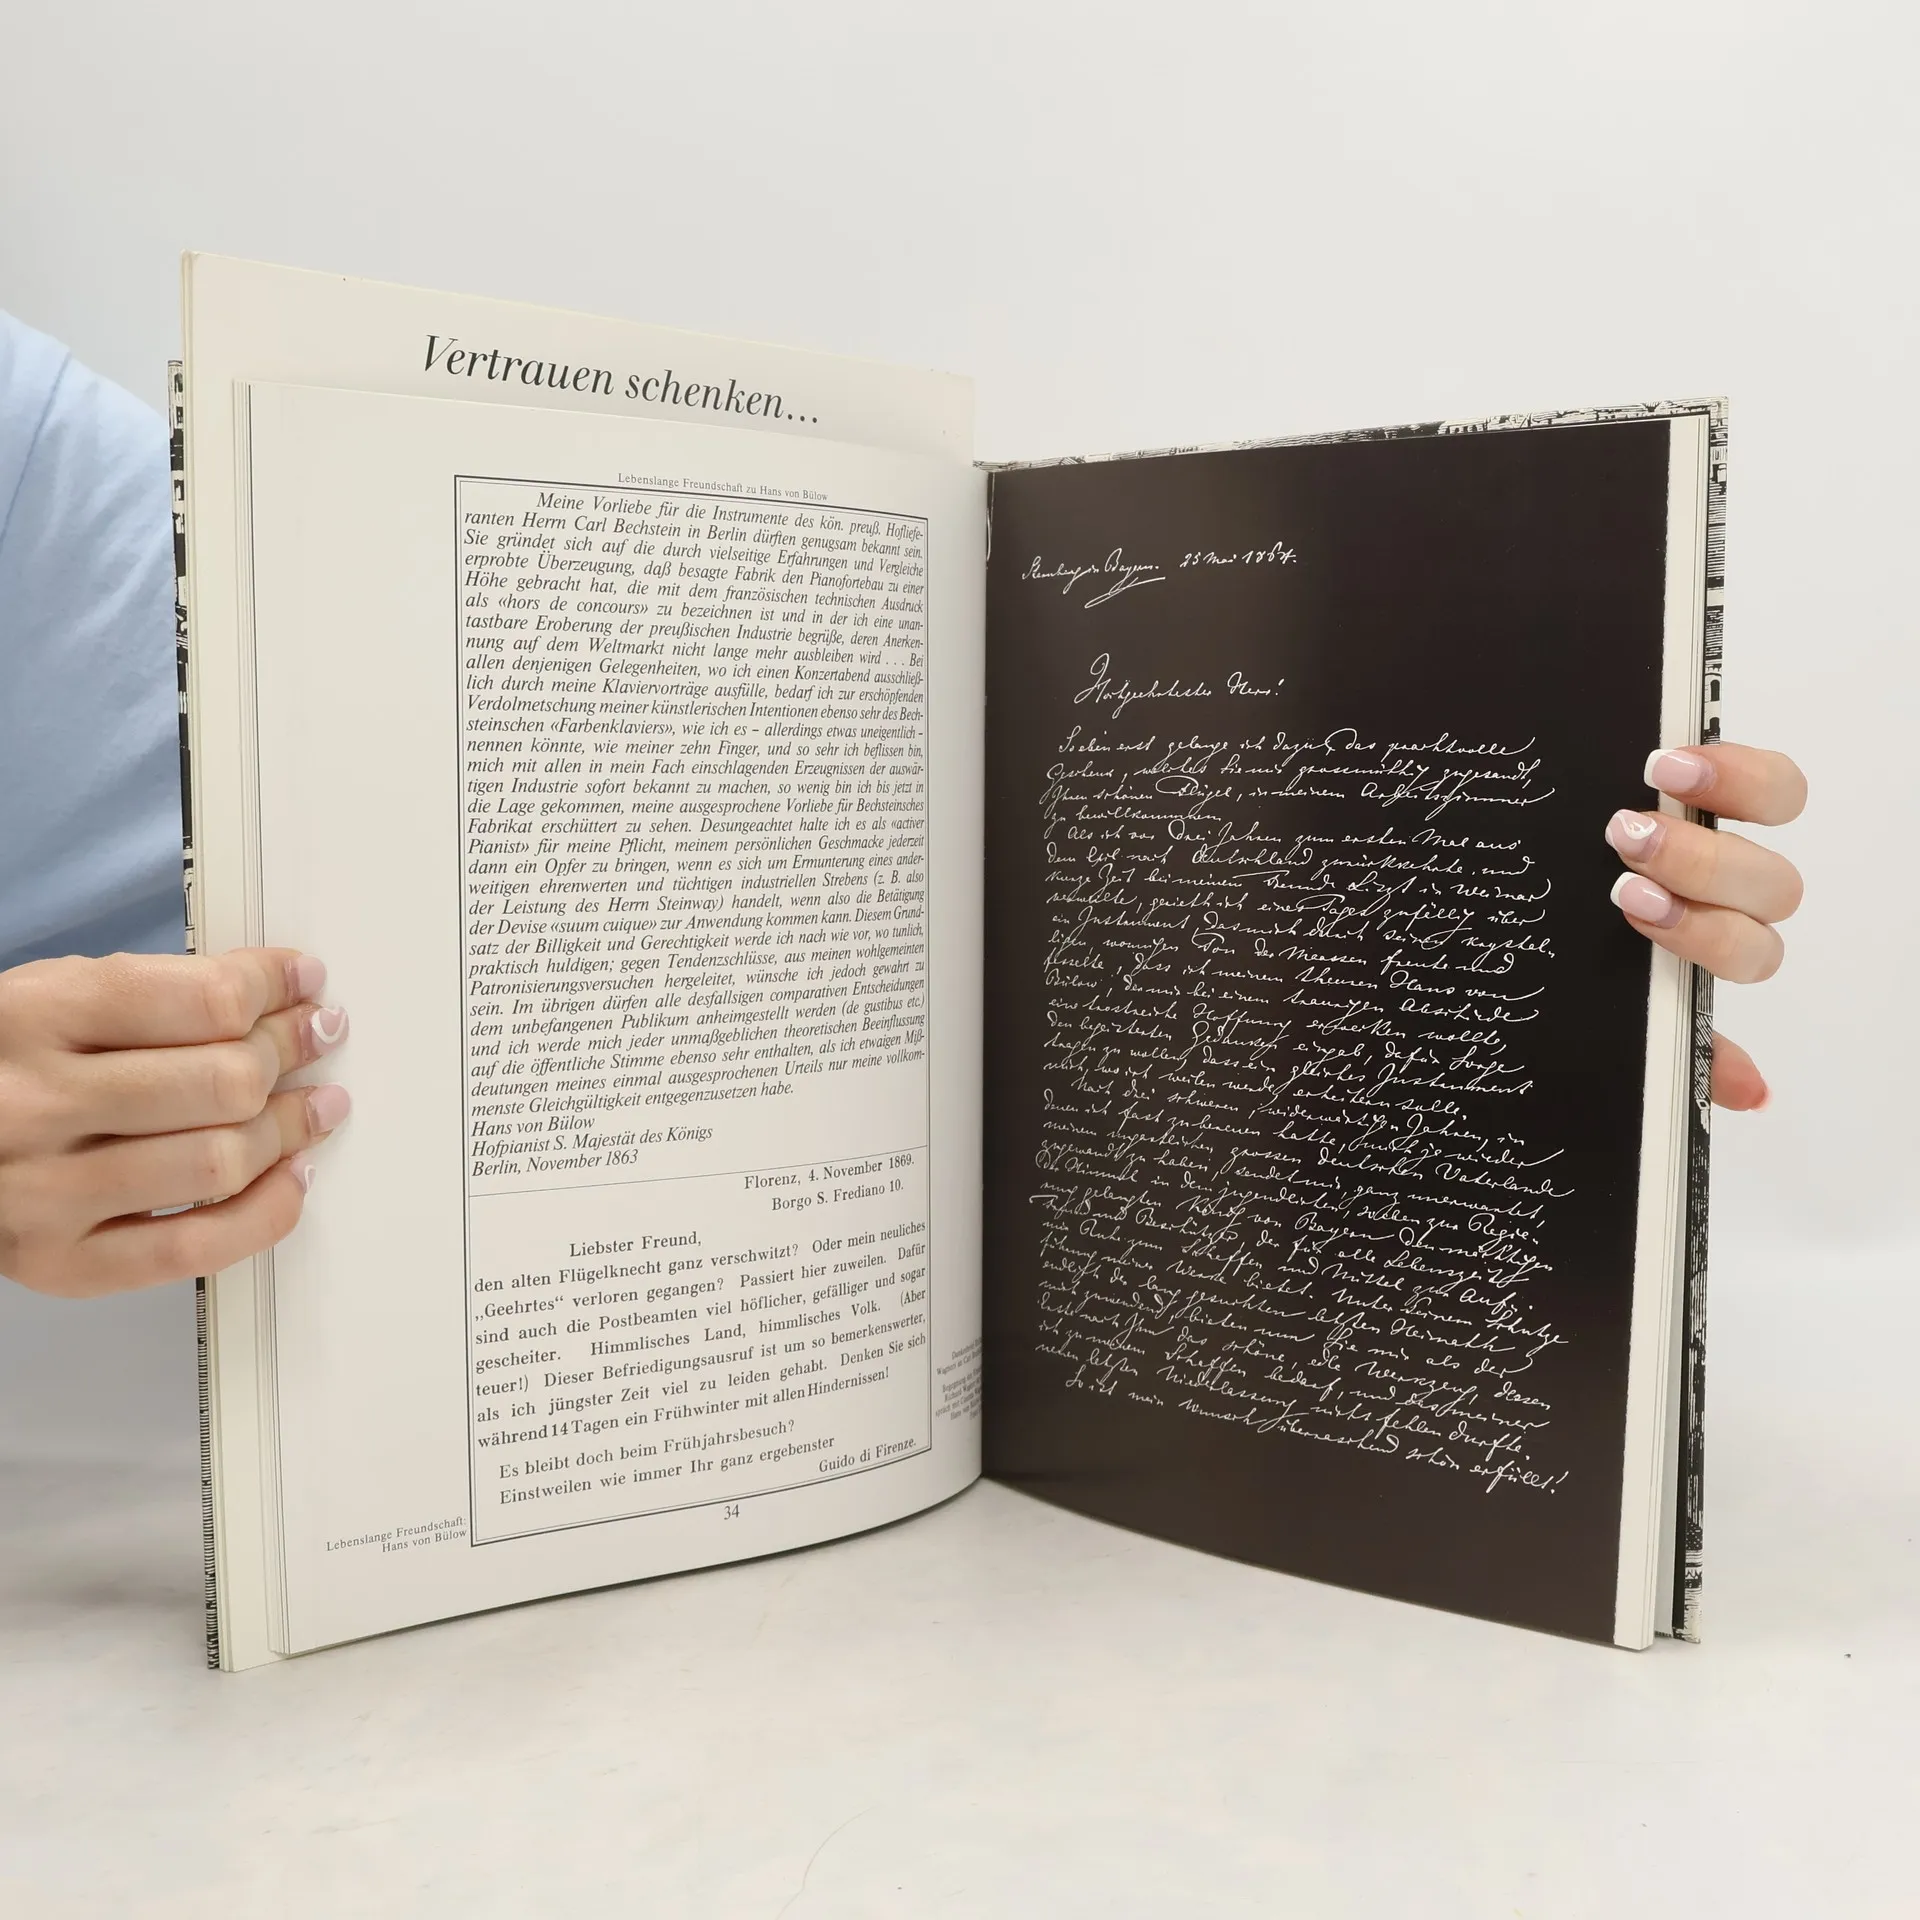 Vertrauen schenken...
Lebenslange Freundschaft zu Hans von Bülow
Meine Vorliebe für die Instrumente des kön. preuß. Hofliefe-
ranten Herrn Carl Bechstein in Berlin dürften genugsam bekannt sein.
Sie gründet sich auf die durch vielseitige Erfahrungen und Vergleiche
erprobte Überzeugung, daß besagte Fabrik den Pianofortebau zu einer
Höhe gebracht hat, die mit dem französischen technischen Ausdruck
als «hors de concours» zu bezeichnen ist und in der ich eine unan-
tastbare Eroberung der preußischen Industrie begrüße, deren Anerken-
nung auf dem Weltmarkt nicht lange mehr ausbleiben wird . . . Bei
allen denjenigen Gelegenheiten, wo ich einen Konzertabend ausschließ-
lich durch meine Klaviervorträge ausfülle, bedarf ich zur erschöpfenden
Verdolmetschung meiner künstlerischen Intentionen ebenso sehr des Bech-
steinschen «Farbenklaviers», wie ich es – allerdings etwas uneigentlich -
nennen könnte, wie meiner zehn Finger, und so sehr ich beflissen bin,
mich mit allen in mein Fach einschlagenden Erzeugnissen der auswär-
tigen Industrie sofort bekannt zu machen, so wenig bin ich bis jetzt in
die Lage gekommen, meine ausgesprochene Vorliebe für Bechsteinsches
Fabrikat erschüttert zu sehen. Desungeachtet halte ich es als «activer
Pianist» für meine Pflicht, meinem persönlichen Geschmacke jederzeit
dann ein Opfer zu bringen, wenn es sich um Ermunterung eines ander-
weitigen ehrenwerten und tüchtigen industriellen Strebens (z. B. also
der Leistung des Herrn Steinway) handelt, wenn also die Betätigung
der Devise «suum cuique» zur Anwendung kommen kann. Diesem Grund-
satz der Billigkeit und Gerechtigkeit werde ich nach wie vor, wo tunlich,
praktisch huldigen; gegen Tendenzschlüsse, aus meinen wohlgemeinten
Patronisierungsversuchen hergeleitet, wünsche ich jedoch gewahrt zu
sein. Im übrigen dürfen alle desfallsigen comparativen Entscheidungen
dem unbefangenen Publikum anheimgestellt werden (de gustibus etc.)
und ich werde mich jeder unmaßgeblichen theoretischen Beeinflussung
auf die öffentliche Stimme ebenso sehr enthalten, als ich etwaigen Miß-
deutungen meines einmal ausgesprochenen Urteils nur meine vollkom-
menste Gleichgültigkeit entgegenzusetzen habe.
Hans von Bülow
Hofpianist S. Majestät des Königs
Berlin, November 1863
Florenz, 4. November 1869.
Borgo S. Frediano 10.
Liebster Freund,
den alten Flügelknecht ganz verschwitzt? Oder mein neuliches
„Geehrtes“ verloren gegangen? Passiert hier zuweilen. Dafür
sind auch die Postbeamten viel höflicher, gefälliger und sogar
gescheiter. Himmlisches Land, himmlisches Volk. (Aber
teuer!) Dieser Befriedigungsausruf ist um so bemerkenswerter,
als ich jüngster Zeit viel zu leiden gehabt. Denken Sie sich
während 14 Tagen ein Frühwinter mit allen Hindernissen!
Es bleibt doch beim Frühjahrsbesuch?
Einstweilen wie immer Ihr ganz ergebenster
Guido di Firenze.
34
Lebenslange Freundschaft:
Hans von Bülow
Starnberg in Bayern. 25 Mai 1864.
Hochgeehrtester Herr!
So eben erst gelange ich dazu, das prachtvolle
Geschenk, welches Sie mir grossmüthig zugesandt,
Ihren schönen Flügel, in meinem Arbeitszimmer
zu bewillkommnen.
Als ich vor drei Jahren zum ersten Mal aus
dem Exil nach Deutschland zurückkehrte, und
kurze Zeit bei meinem Freunde Liszt in Weimar
verweilte, gerieth ich eines Tages zufällig über
ein Instrument, das mich durch seinen krystal-
ligen, wonnigen Ton der Maassen freute und
fesselte, dass ich meinem theuren Hans von
Bülow, der mir bei einem traurigen Abschiede
eine trostreiche Hoffnung erwecken wollte,
den begeisterten Gedanken eingab, dafür Sorge
tragen zu wollen, dass ein gleiches Instrument
mich, wo ich weilen werde, erheitern solle.
Nach drei schweren, widerwärtigen Jahren, in
denen ich fast zu bereuen hatte, mich je wieder
meinem ungastlichen grossen deutschen Vaterlande
zugewandt zu haben, sendet mir, ganz unerwartet,
der Himmel in dem jugendlichen, soeben zur Regie-
rung gelangten König von Bayern den mächtigen
Freund und Beschützer, der für alle Lebenszeit
mir Ruhe zum Schaffen und Mittel zur Auf-
führung meiner Werke bietet. Unter seinem Schutze
endlich der lang gesuchten letzten Heimath
mich zuwendend, bieten nun Sie mir als der
erste nach Ihm das schöne, edle Werkzeug, dessen
ich zu meinem Schaffen bedarf, und das meiner
neuen letzten Niederlassung nicht fehlen durfte.
So ist mein Wunsch überraschend schön erfüllt!